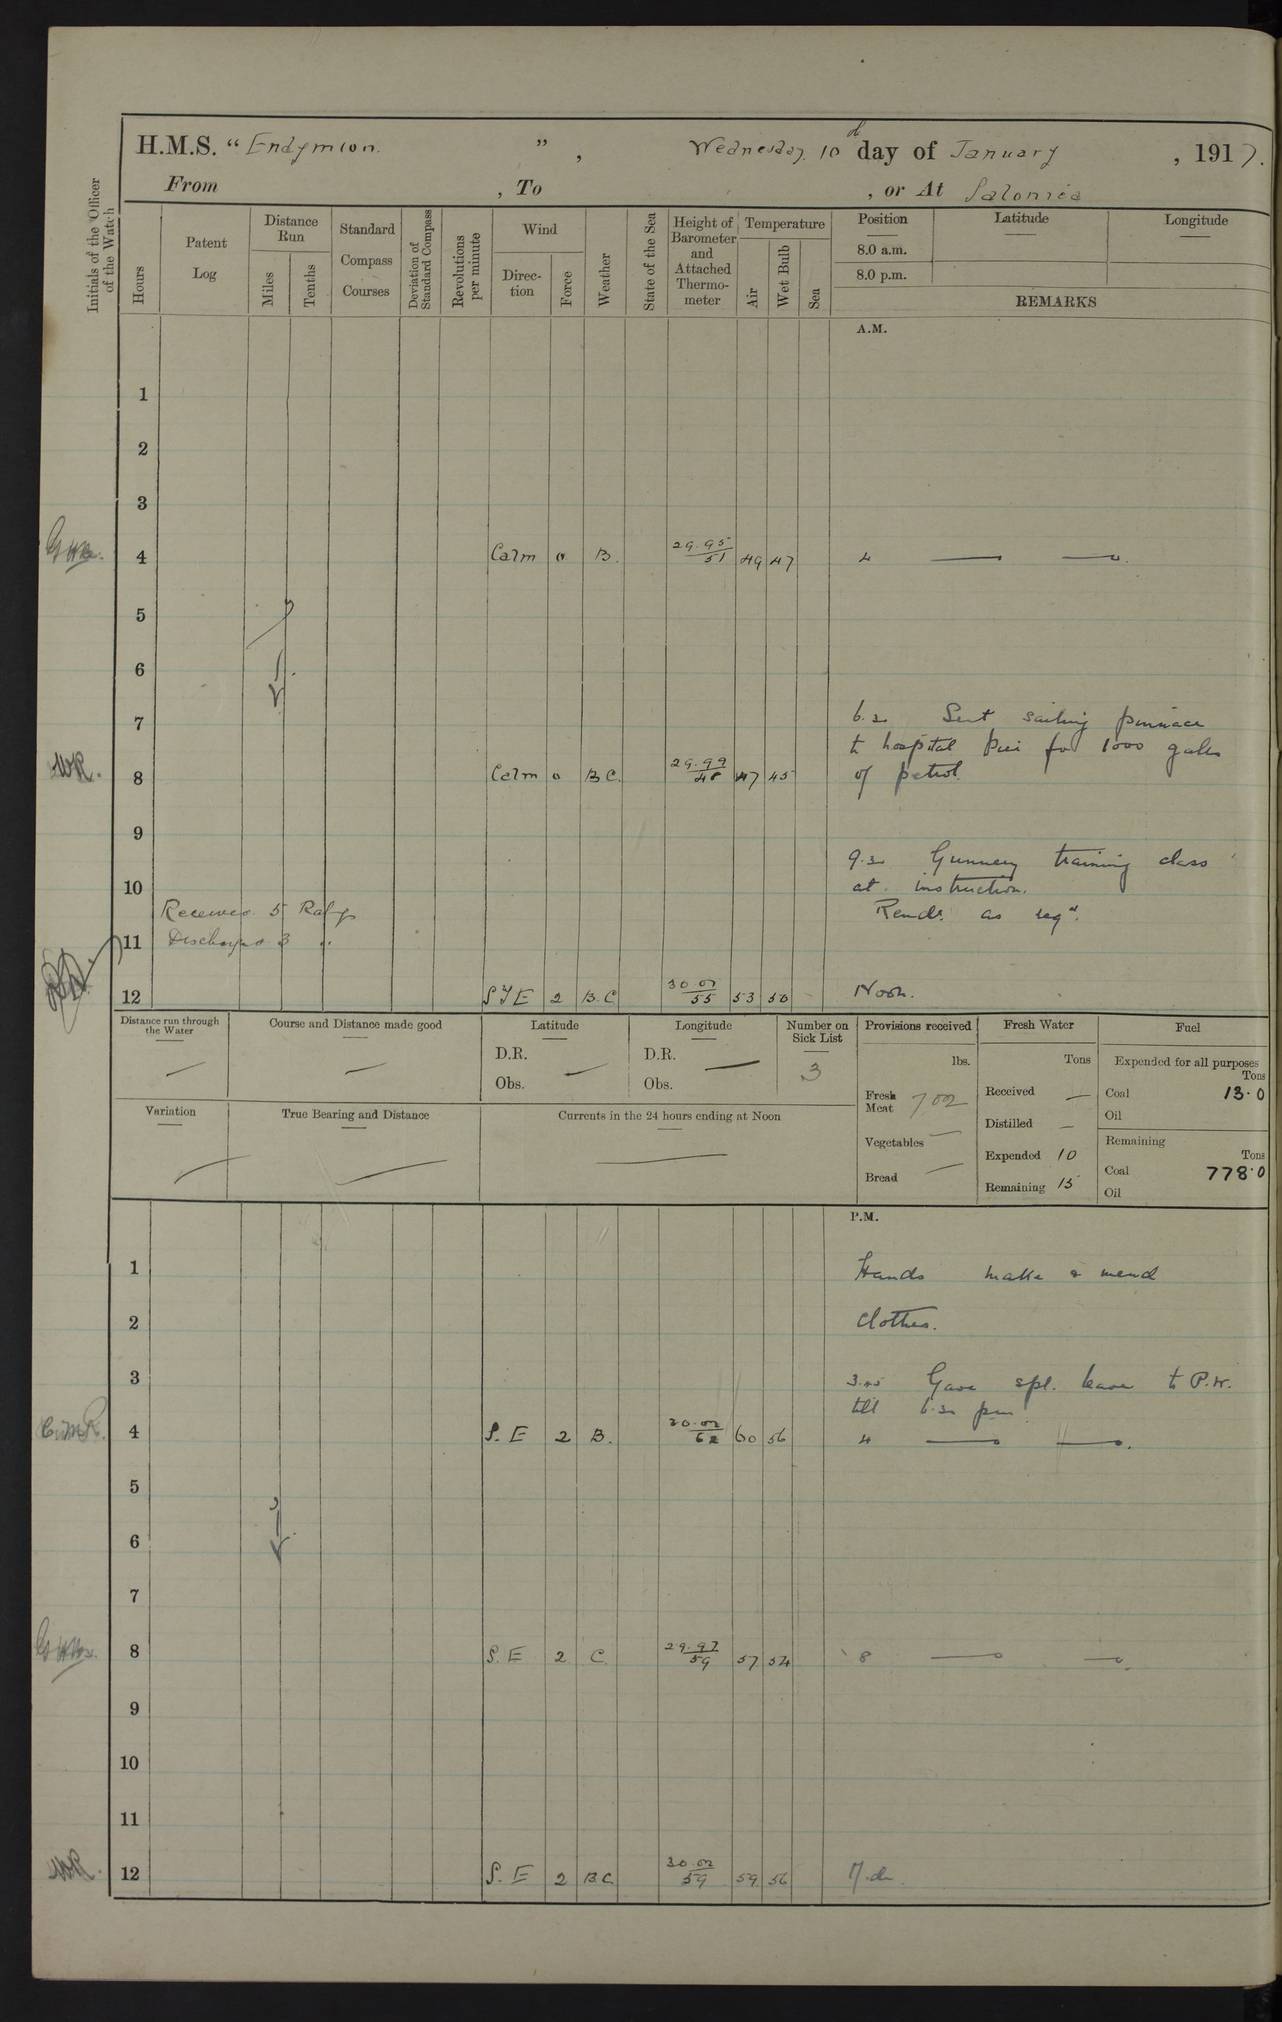 H.M.S. “ Endymion. ” , Wednesday. 10th day of January , 1917.
From , To , or At Salonica
Initials of the Officer of the Watch
Hours
Patent Log
Distance Run
Miles
Tenths
Standard Compass Courses
Deviation of Standard Compass
Revolutions per minute
Wind
Direc-tion
Force
Weather
State of the Sea
Height of Barometer and Attached Thermo-meter
Temperature
Air
Wet Bulb
Sea
Position Latitude Longitude
8.0 a.m.
8.0 p.m.
REMARKS
A.M.
1
2
3
4 Calm 0 B. 29.95/51 49 47 4
5
6
7
6.30 Sent sailing pinnace
to hospital pier for 1000 galls
of petrol.
8 Calm 0 B C. 29.99/48 47 45
9
9.30 Gunnery training class
10 at instruction.
Received 5 Ratgs
Remdr. as reqd.
11 Discharged 3 "
12 S'ly E 2 B.C 30.02/55 53 50 Noon.
Distance run through the Water
Course and Distance made good
Latitude
D.R.
Obs.
Longitude
D.R.
Obs.
Number on Sick List
3
Variation
True Bearing and Distance
Currents in the 24 hours ending at Noon
Provisions received
lbs.
Fresh Meat 702
Vegetables
Bread
Fresh Water
Tons
Received
Distilled
Expended 10
Remaining 15
Fuel
Expended for all purposes
Tons
Coal 13.0
Oil
Remaining
Tons
Coal 778.0
Oil
P.M.
1 Hands make & mend
2 clothes.
3 3.00 Gave spl. leave to P.W.
till 6.30 pm.
4 S.E 2 B. 30.02/62 60 56 4
5
6
7
8 S.E 2 C. 29.97/59 57 54 8
9
10
11
12 S.E 2 B C 30.02/59 59 56 M.dn.